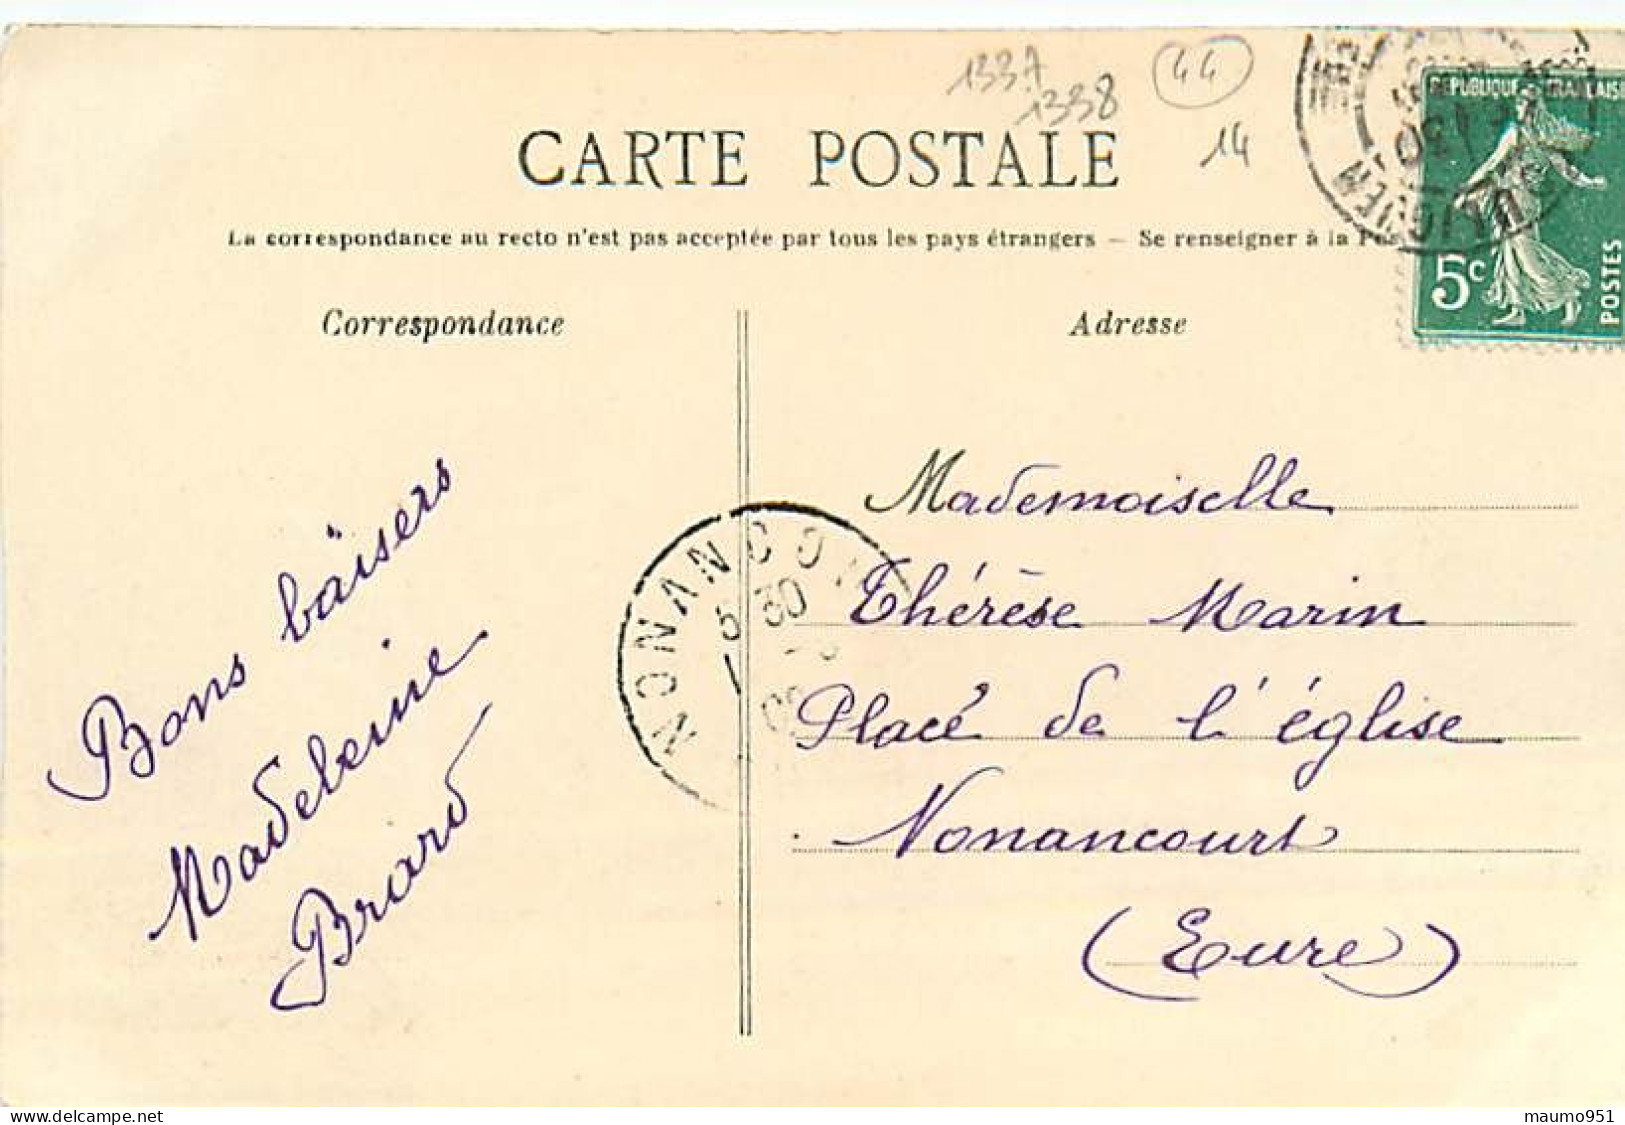 1337
1338
44
14
CARTE POSTALE
La correspondance au recto n'est pas acceptée par tous les pays étrangers — Se renseigner à la
REPUBLIQUE FRANÇAISE
5c
POSTES
Correspondance
Adresse
Bons baïsers
Madeleine
Briard
NONANCO
5 30
Mademoiselle
Thérèse Marin
Placé de l'église
Nonancourt
(Eure)
delcampe.net
maumo951